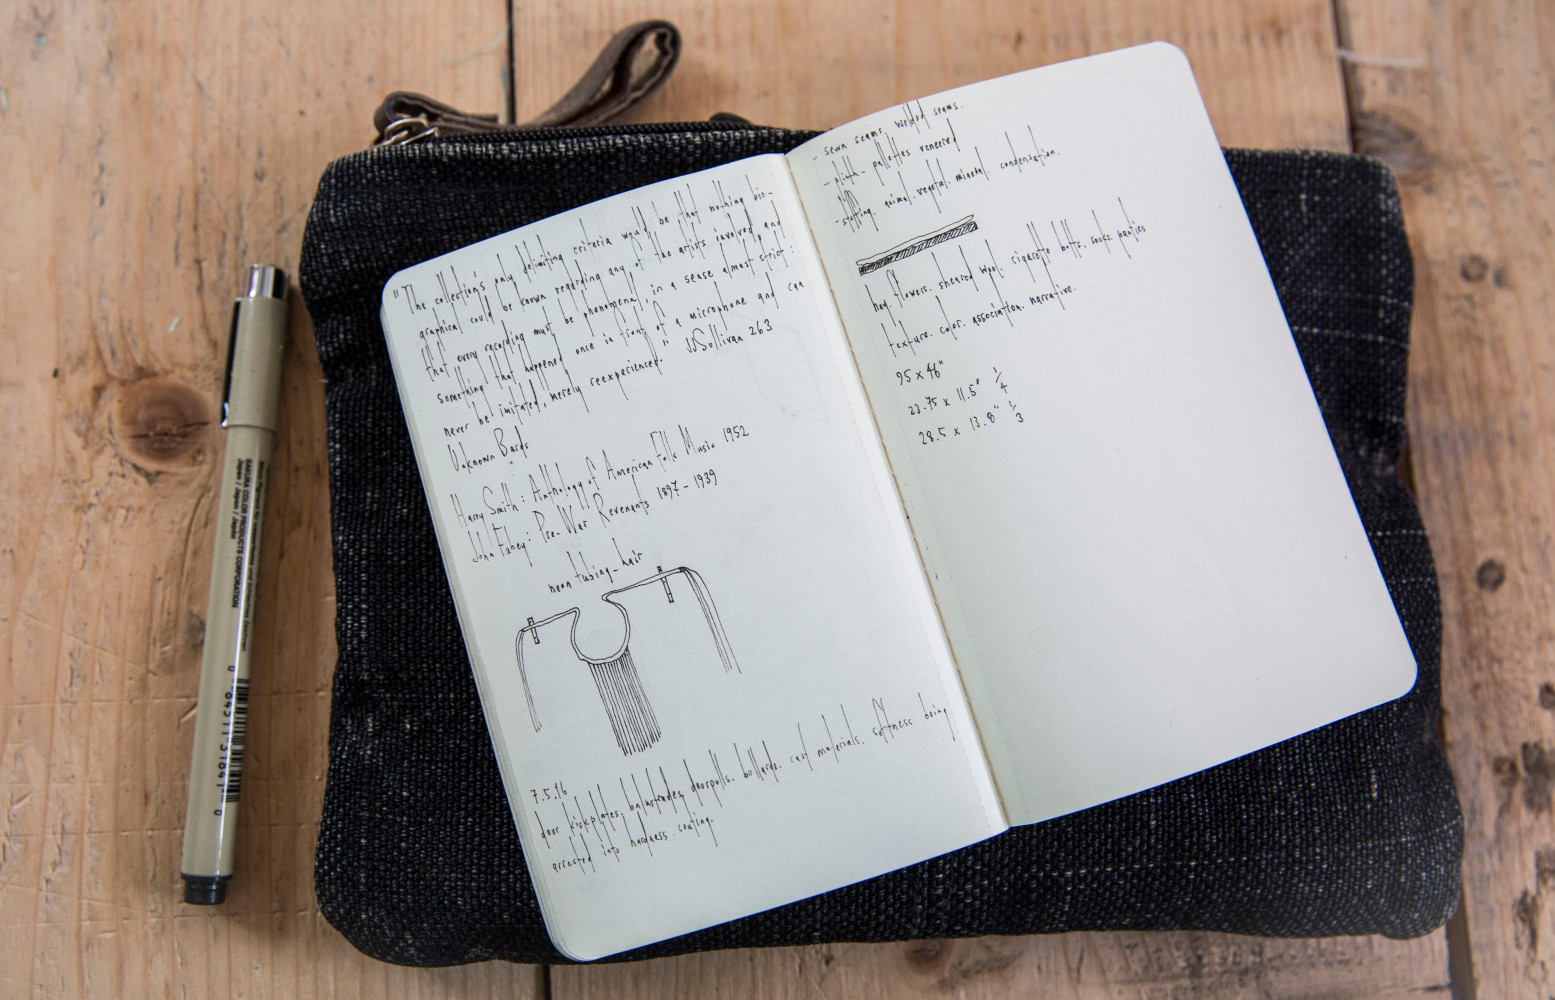 "The collection's only delimiting criteria would be that nothing bio-
graphical could be known regarding any of the artists involved, and
that every recording must be phenomenal, in a sense almost strict:
Something that happened once in front of a microphone and can
never be imitated, merely reexperienced." JJSullivan 263
Unknown Bards
Harry Smith: Anthology of American Folk Music 1952
John Fahey: Pre-War Revenants 1897-1939
neon tubing - hair
7.5.16
door kickplates. balustrades. doorpulls. bollards. cast materials. softness being
arrested into hardness. coating.
- sewn seams. welded seams.
- plinth - pallettes veneered
- stuffing. animal. vegetal. mineral. condensation.
flowers. sheared wool. cigarette butts. socks. panties
texture. color. association. narrative.
95 x 46"
23.75 x 11.5" 1/4
28.5 x 13.8" 1/3
SAKURA COLOR PRODUCTS CORPORATION
Japan / Japon / Japón
0 84511 31841 0